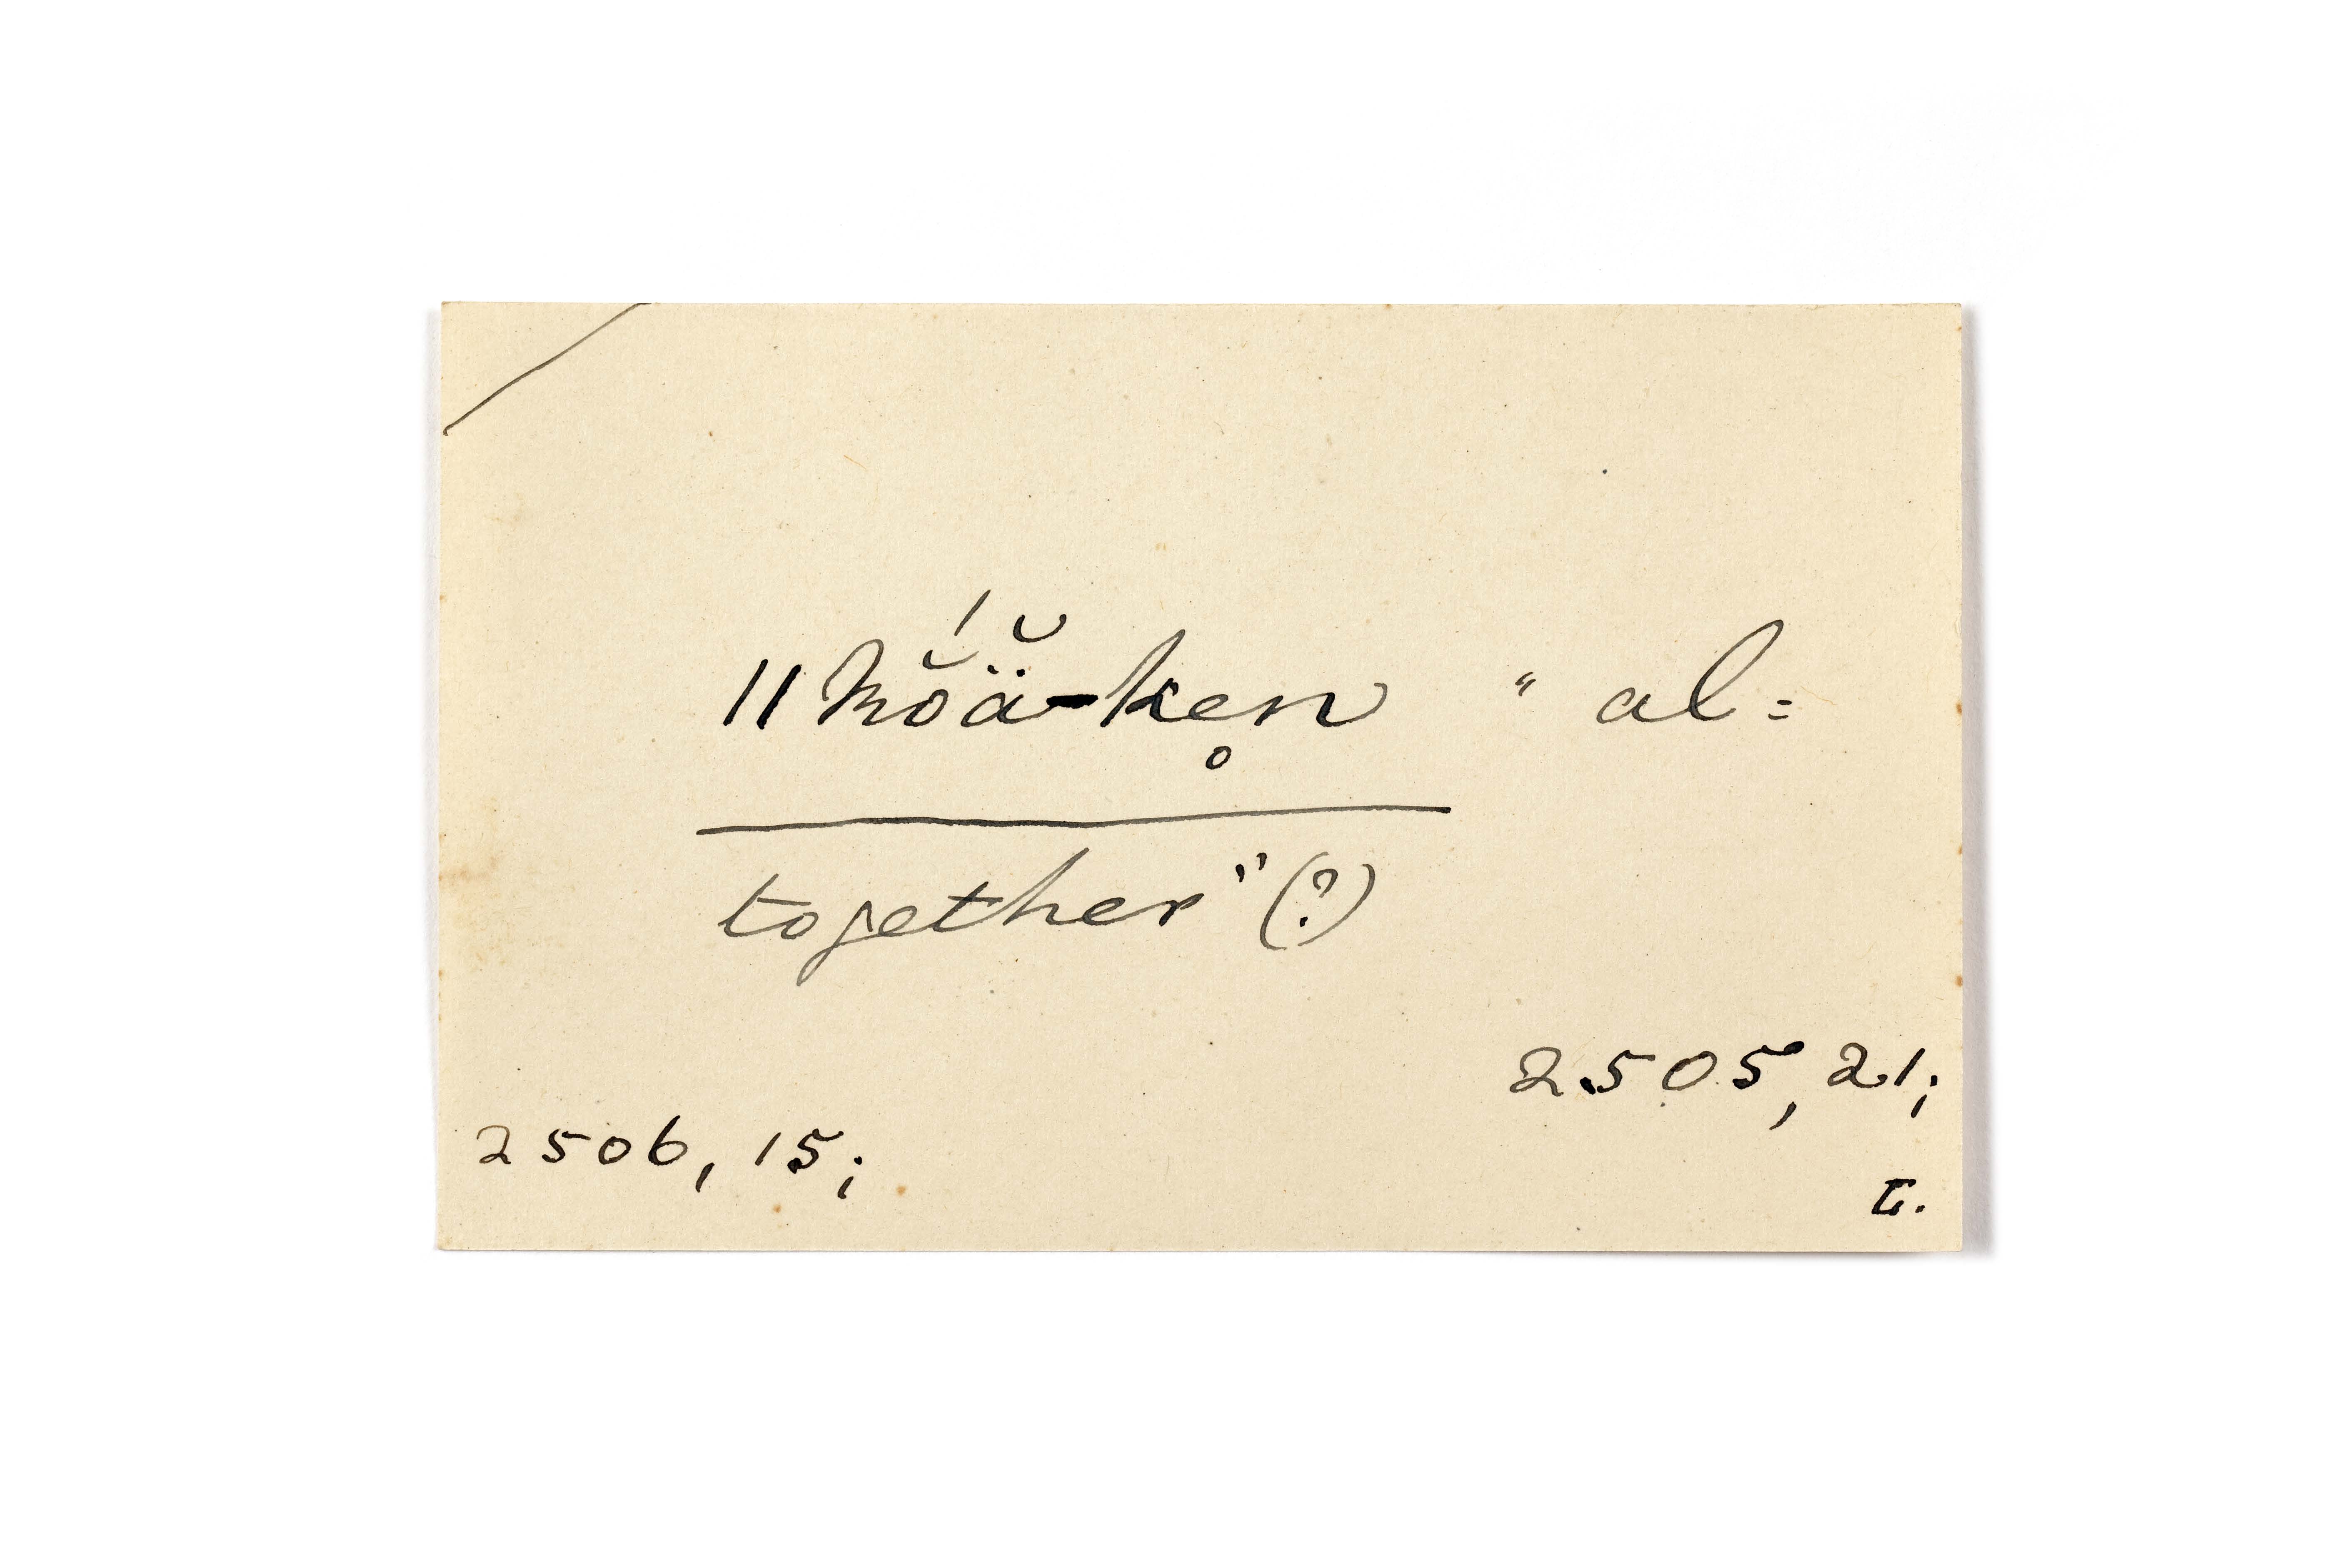 ǁkŏ́ä̆-ke̥n " al=
together" (?)
2505, 21;
2506, 15;
L.